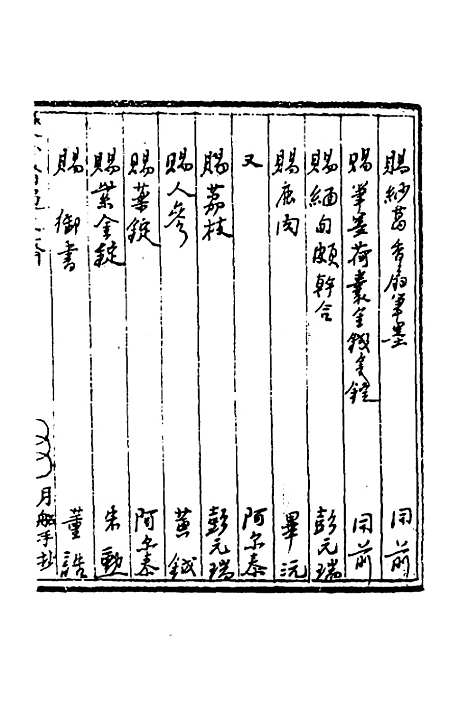 賜紗葛香扇筆墨 同前
賜筆墨荷囊金錢金錠 同前
賜緬甸頗幹合 彭元瑞
賜鹿肉 畢沅
又 阿尔泰
賜荔枝 彭元瑞
賜人參 黃鉞
賜藥錠 阿尔泰
賜紫金錠 朱勳
賜 御書 董誥
月船手抄